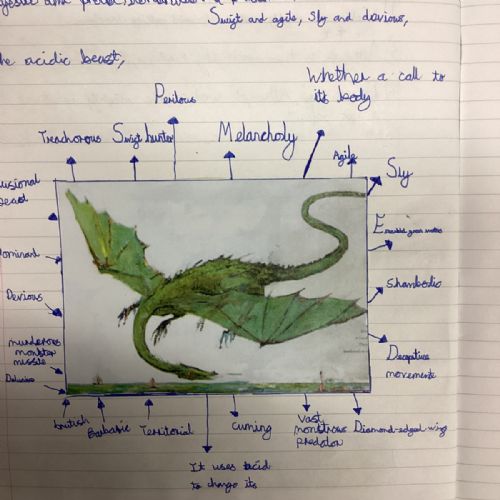 Swift and agile, Sly and devious,
he acidic beast,
Whether a call to
its body
Perilous
Treachorous
Swift hunter
Melancholy
Agile
Sly
usional
beast
Dominant
Shambolic
Devious
Deceptive
movements
murderous
monster
missile
Delusive
brutish
Barbaric
Territorial
cuning
Vast
monstrous
predator
Diamond-edged wing
It uses acid
to change its